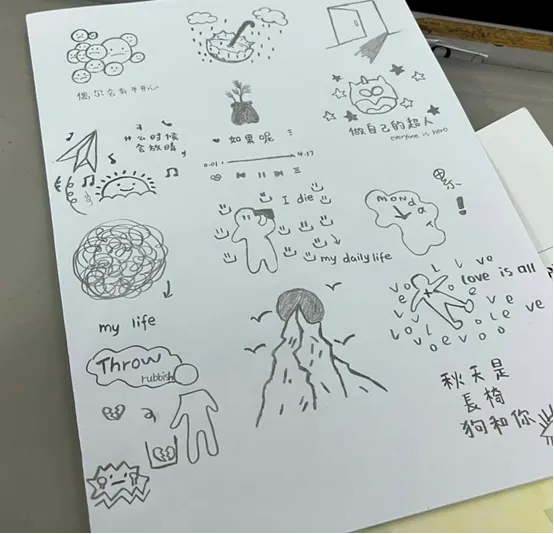 偶尔会有不开心
什么时候
会放晴
如果呢
0:01 4:17
做自己的超人
everyone is hero
I die
my daily life
monday
my life
Throw
rubbish
love is all
love love love love
秋天是
長椅
狗和你